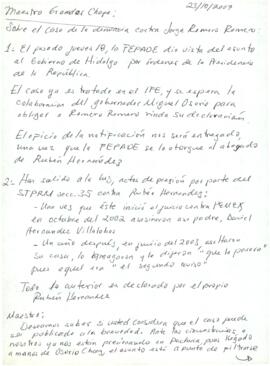 Maestro Granados Chapa:
23/10/2007
Sobre el caso de la denuncia contra Jorge Romero Romero:
1- El pasado jueves 18, la FEPADE dio vista del asunto
al Gobierno de Hidalgo por órdenes de la Presidencia
de la República.
El caso ya es tratado en el IFE, y se espera la
colaboración del gobernador Miguel Osorio para
obligar a Romero Romero rinda su declaración
El oficio de la notificación nos será entregado,
una vez que la FEPADE se lo otorgue al abogado
de Rubén Hernández
2- Han salido a la luz, actos de presión por parte del
STPRM secc. 35 contra Rubén Hernández:
- Una vez que éste inició el juicio contra PEMEX
en octubre del 2002 asesinaron a su padre, Daniel
Hernández Villalobos
- Un año después, en junio del 2003,
su casa, lo y le dijeron "que le parara"
pues aquel era "el segundo aviso"
Todo lo anterior es declarado por el propio
Rubén Hernández
Maestro:
Deseamos saber si usted considera que el caso puede
ser publicado a la brevedad. Ante las circunstancias a
nosotros ya nos están presionando en Pachuca pues llegado
a manos de Osorio Chong, el asunto está a punto de filtrarse